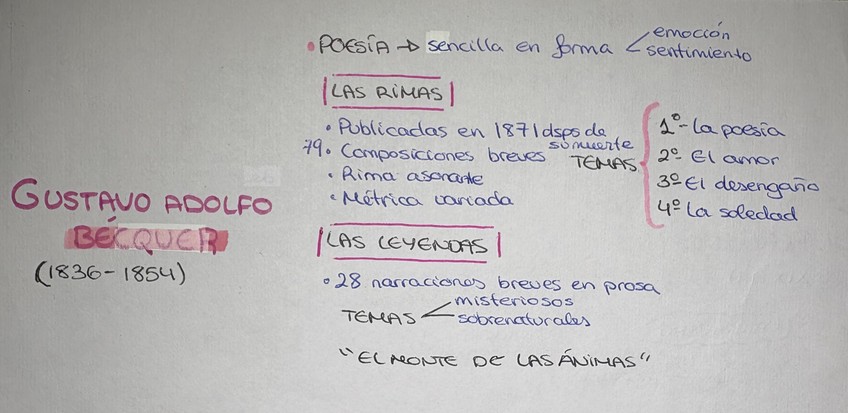 • POESÍA → sencilla en forma < emoción
sentimiento
LAS RIMAS
• Publicadas en 1871 dsps de
su muerte
79 • Composiciones breves
• Rima asonante
• Métrica variada
TEMAS
1º- La poesía
2º- El amor
3º El desengaño
4º La soledad
GUSTAVO ADOLFO
BÉCQUER
(1836-1854)
LAS LEYENDAS
• 28 narraciones breves en prosa
TEMAS < misteriosos
sobrenaturales
"EL MONTE DE LAS ÁNIMAS"